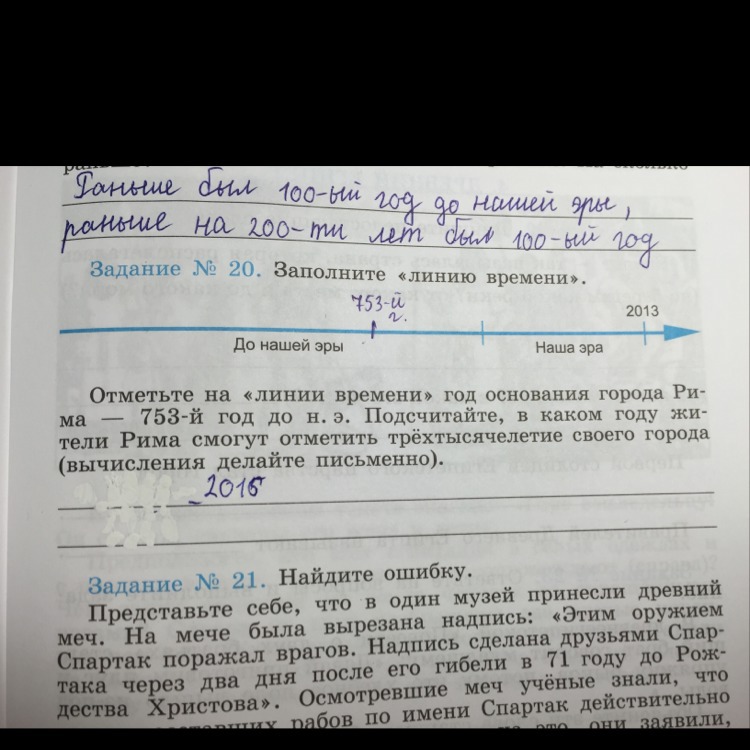 Раньше был 100-ый год до нашей эры,
раньше на 200-ти лет был 100-ый год
Задание № 20. Заполните «линию времени».
753-й
г.
2013
До нашей эры
Наша эра
Отметьте на «линии времени» год основания города Ри-
ма — 753-й год до н. э. Подсчитайте, в каком году жи-
тели Рима смогут отметить трёхтысячелетие своего города
(вычисления делайте письменно).
2015
Задание № 21. Найдите ошибку.
Представьте себе, что в один музей принесли древний
меч. На мече была вырезана надпись: «Этим оружием
Спартак поражал врагов. Надпись сделана друзьями Спар-
така через два дня после его гибели в 71 году до Рож-
дества Христова». Осмотревшие меч учёные знали, что
рабов по имени Спартак действительно
это, они заявили,